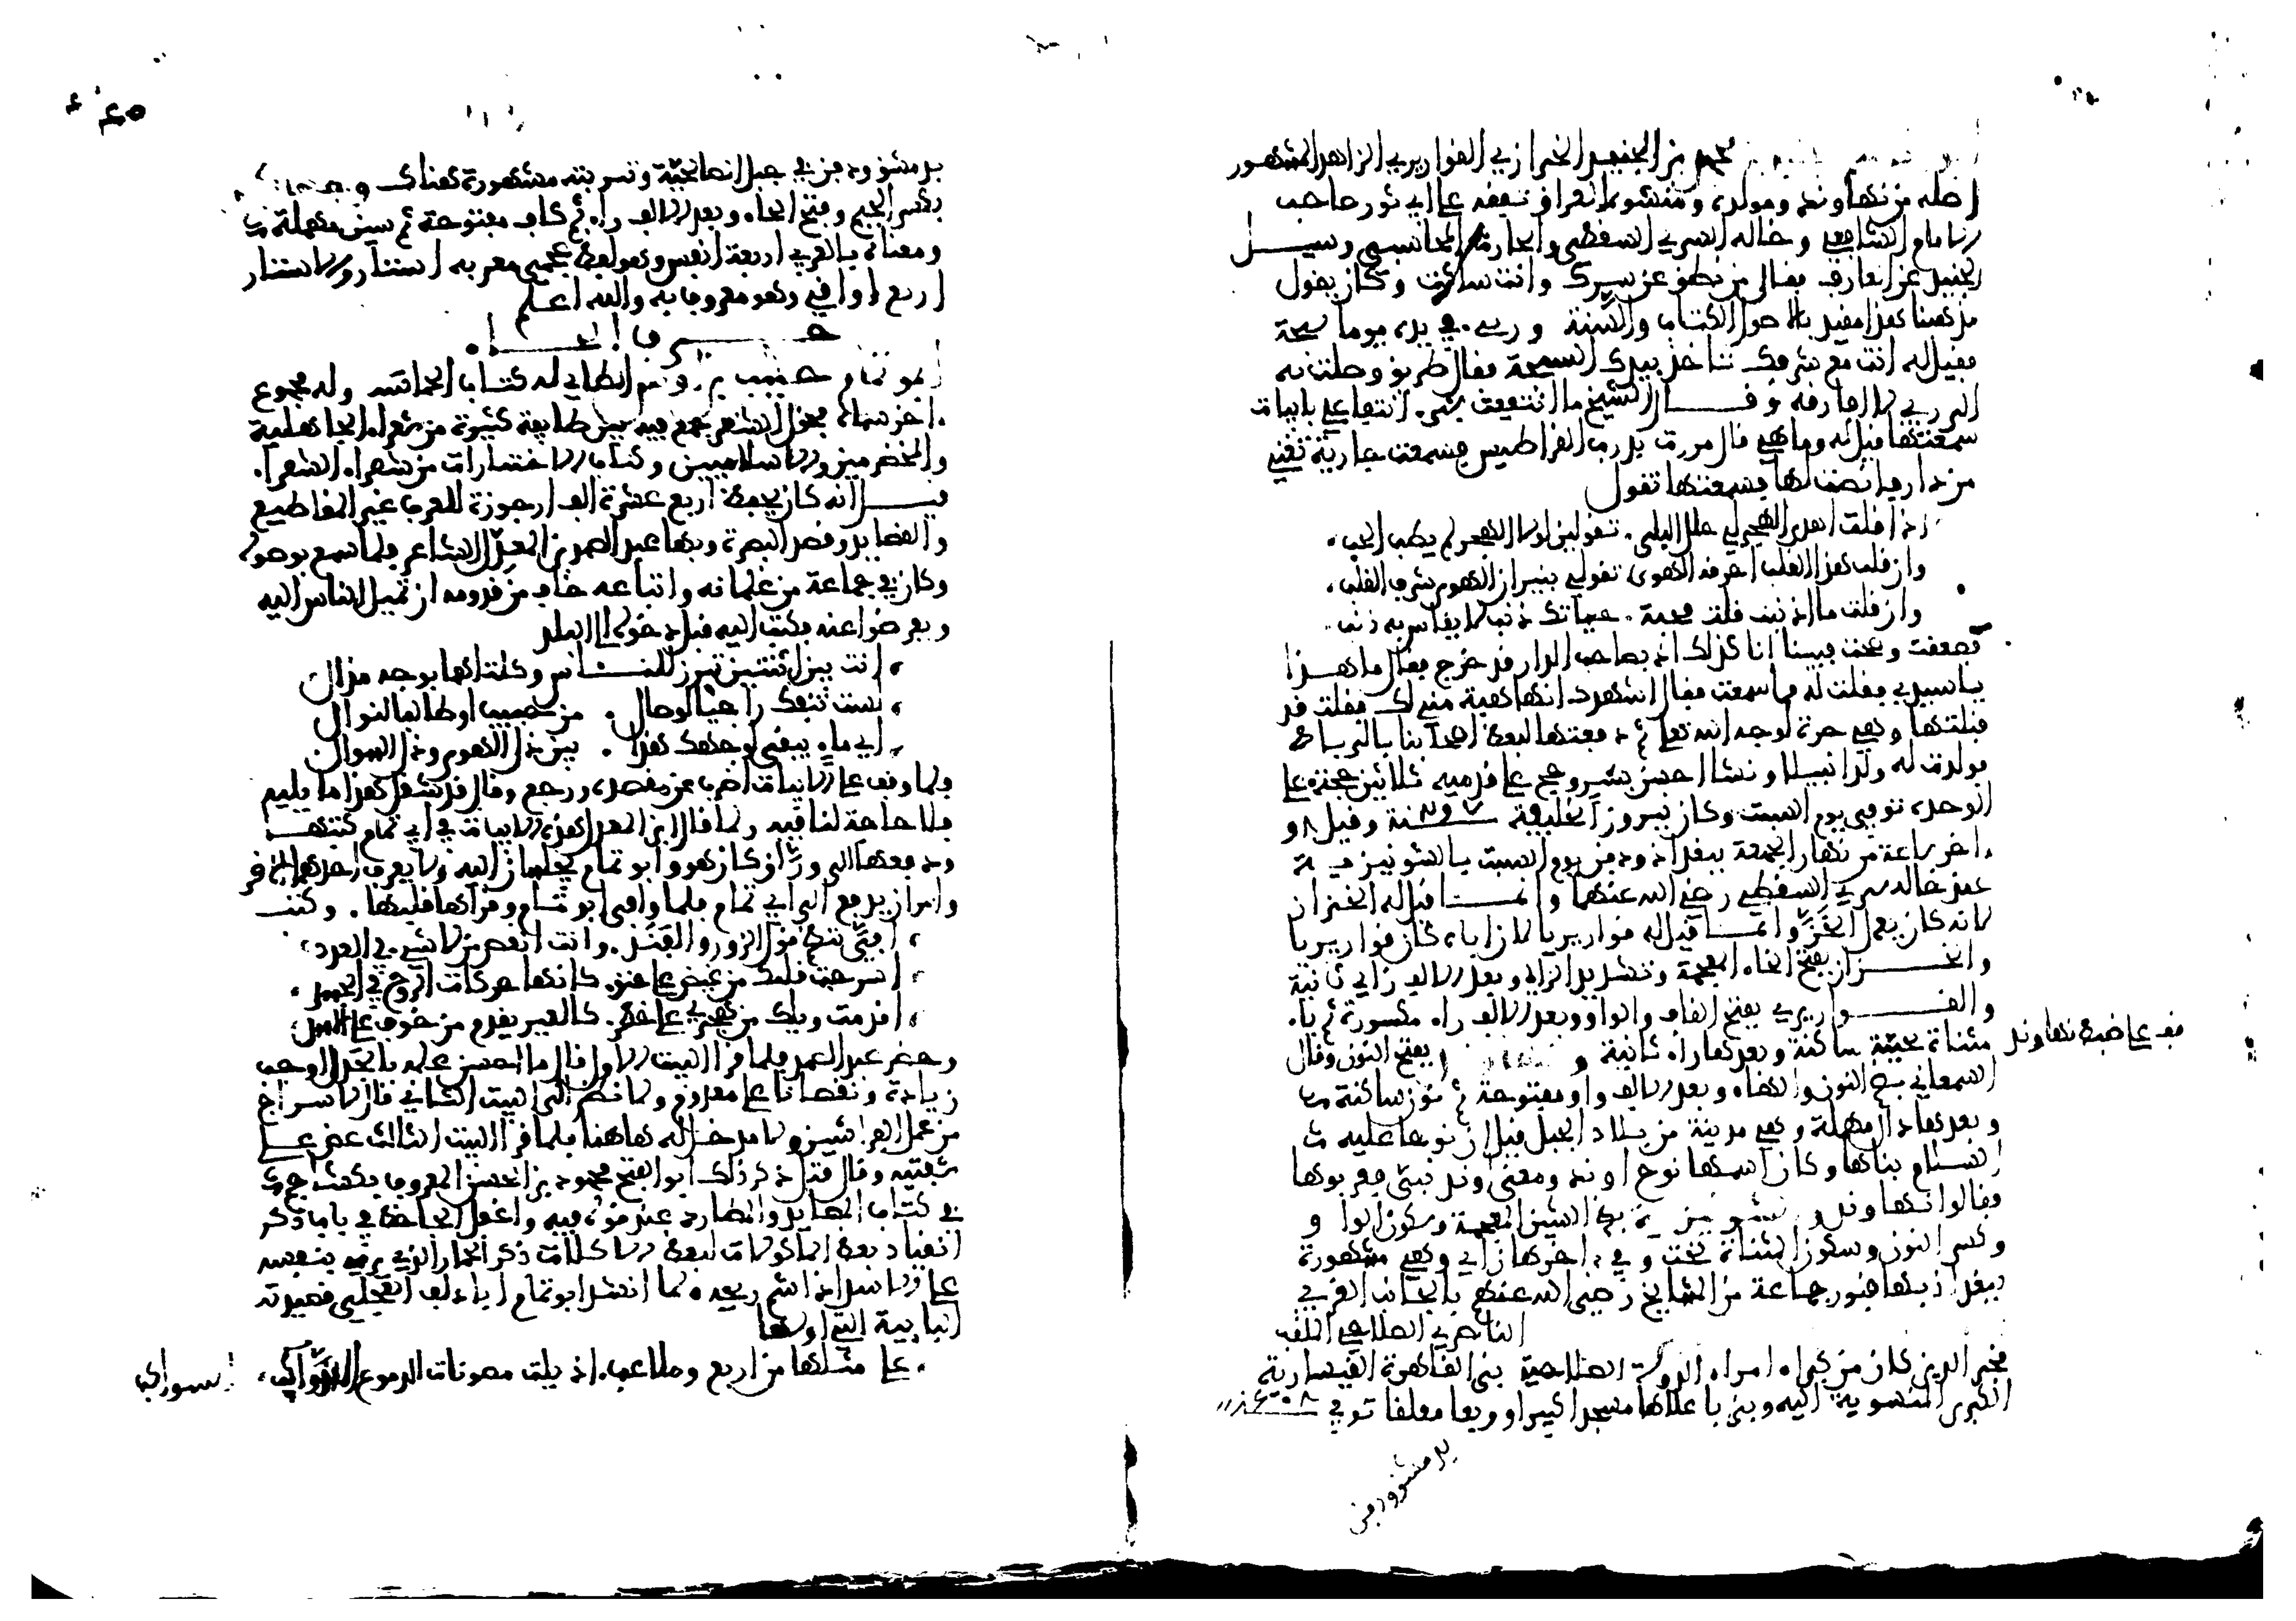 محمد بن الجنيد الخزازي القواريري الزاهد المشهور
اصله من نهاوند ومولده ومنشوه العراق تفقه على ابي ثور صاحب
الامام الشافعي وخاله السري السقطي والحارث المحاسبي وسيل
الجنيد عن العارف فقال من نطق عن سرك وانت ساكت وكان يقول
مذهبنا هذا مقيد باصول الكتاب والسنة ورىء في يده يوما سبحة
فقيل له انت مع شرفك تاخذ بيدك السبحة فقال طريق وصلت به
الى ربي لا افارقه وقال الشيخ ما انتفعت بشيء انتفاعي بابيات
سمعتها قيل له وما هي قال مررت بدرب القراطيس فسمعت جارية تغني
من دار فانصت لها فسمعتها تقول
اذا قلت اهدى الهجر لي حلل البلى . تقولين لولا الهجر لم يطب الحب
وان قلت هذا القلب احرقه الهوى تقولي بنيران الهوى شرف القلب
وان قلت ما اذنبت قلت مجيبة . حياتك ذنب لا يقاس به ذنب
فصعقت وصحت فبينا انا كذلك اذ بصاحب الدار قد خرج فقال ما هذا
يا سيدي فقلت له مما سمعت فقال اشهدك انها هبة مني لك فقلت قد
قبلتها وهي حرة لوجه الله تعالى ثم دفعتها لبعض اصحابنا بالرباط
فولدت له ولدا نبيلا ونشا احسن نشو وحج على قدميه ثلاثين حجة على
الوحدة توفي يوم السبت وكان نيروز الخليفة سنة وقيل
اخر ساعة من نهار الجمعة ببغداد ودفن يوم السبت بالشونيزية
عند خاله سري السقطي رضي الله عنهما وانما قيل له الخزاز
لانه كان يعمل الخز وانما قيل له قواريريا لان اباه كان قواريريا
والخزاز بفتح الخاء المعجمة وتشديد الزاي وبعد الالف زاي ثانية
والقواريري بفتح القاف والواو وبعد الالف راء مكسورة ثم ياء
مثناة تحتية ساكنة وبعدها راء ثانية و بفتح النون وقال
قف على ضبط نهاوند
السمعاني بضم النون والهاء وبعد الالف واو مفتوحة ثم نون ساكنة
وبعدها دال مهملة وهي مدينة من بلاد الجبل قيل ان نوحا عليه
السلام بناها وكان اسمها نوح اوند ومعنى اوند بنى فعربوها
فقالوا نهاوند والشونيزية بضم الشين المعجمة وسكون الواو
وكسر النون وسكون المثناة تحت وفي اخرها زاي وهي مشهورة
ببغداد بها قبور جماعة من المشايخ رضي الله عنهم بالجانب الغربي
الناصري الصلاحي الملقب
فخر الدين كان من كبراء امراء الدولة الصلاحية بنى القاهرة القيسارية
الكبرى المنسوبة اليه وبنى باعلاها مسجدا كبيرا وربعا معلقا توفي
بدمشق ودفن
بدمشق ودفن في جبل الصالحية وتربته مشهورة هناك
بكسر الجيم وفتح الهاء وبعد الالف راء ثم كاف مفتوحة ثم سين مهملة
ومعناه بالعربي اربعة انفس وهو لفظ عجمي معربه استار والاستار
اربع اواقي وهو معروف به والله اعلم
حرف الحاء
ابو تمام حبيب بن اوس الطائي له كتاب الحماسة وله مجموع
اخر سماه فحول الشعر جمع فيه بين طايفة كثيرة من شعراء الجاهلية
والمخضرمين والاسلاميين وكتاب الاختيارات من شعراء الشعراء
قيل انه كان يحفظ اربع عشرة الف ارجوزة للعرب غير المقاطيع
والقصايد وقصد البصرة وبها عبد الصمد بن المعذل الشاعر فلما سمع بوصوله
وكان في جماعة من غلمانه واتباعه خاف من قدومه ان تميل الناس اليه
ويعرضوا عنه فكتب اليه قبل دخوله البلد
انت بين اثنتين تبرز للناس وكلتاهما بوجه مذال
لست تنفك راجيا لوصال . من حبيب او طالبا لنوال
اي ماء يبقى لوجهك هذا . بين ذل الهوى وذل السوال
ولما وقف على الابيات اضرب عن مقصده ورجع وقال قد شغل هذا ما يليه
فلا حاجة لنا فيه ولما قال ابن المعذل هذه الابيات في ابي تمام كتبها
ودفعها الى وراق كان هو وابو تمام يجلسان اليه ولا يعرف احدهما الاخر
وامر ان يدفع الى ابي تمام فلما وافى ابو تمام وقراها قلبها . وكتب
افي تنظم قول الزور والفند . وانت انقص من لا شيء في العدد
اشرجت قلبك من غيض على حنق . كانها حركات الروح في الجسد
اقدمت ويلك من هجوي على خطر . كالعير يقدم من خوف على الاسد
وحضر عبد الصمد فلما قرا البيت الاول قال ما احسن علمه بالجدل اوجب
زيادة ونقصانا على معدوم ولما نظر الى البيت الثاني قال الاسراج
من عمل الفراشين ولا مدخل له هاهنا فلما قرا البيت الثالث عض على
شفتيه وقال قتل ذكر ذلك ابو الفتح محمود بن الحسن المعروف بكشاجم
في كتاب المصايد والمطارد عند قوله فيه واغفل الجاحظ في باب ذكر
انقياد بعض الماكولات لبعض الاكلات ذكر الحمار الذي يرمي بنفسه
على الاسد اذا شم ريحه ولما انشد ابو تمام ابا دلف العجلي قصيدته
البابية التي اولها
على مثلها من اربع وملاعب . اذيلت مصونات الدموع السواكب
السواكب